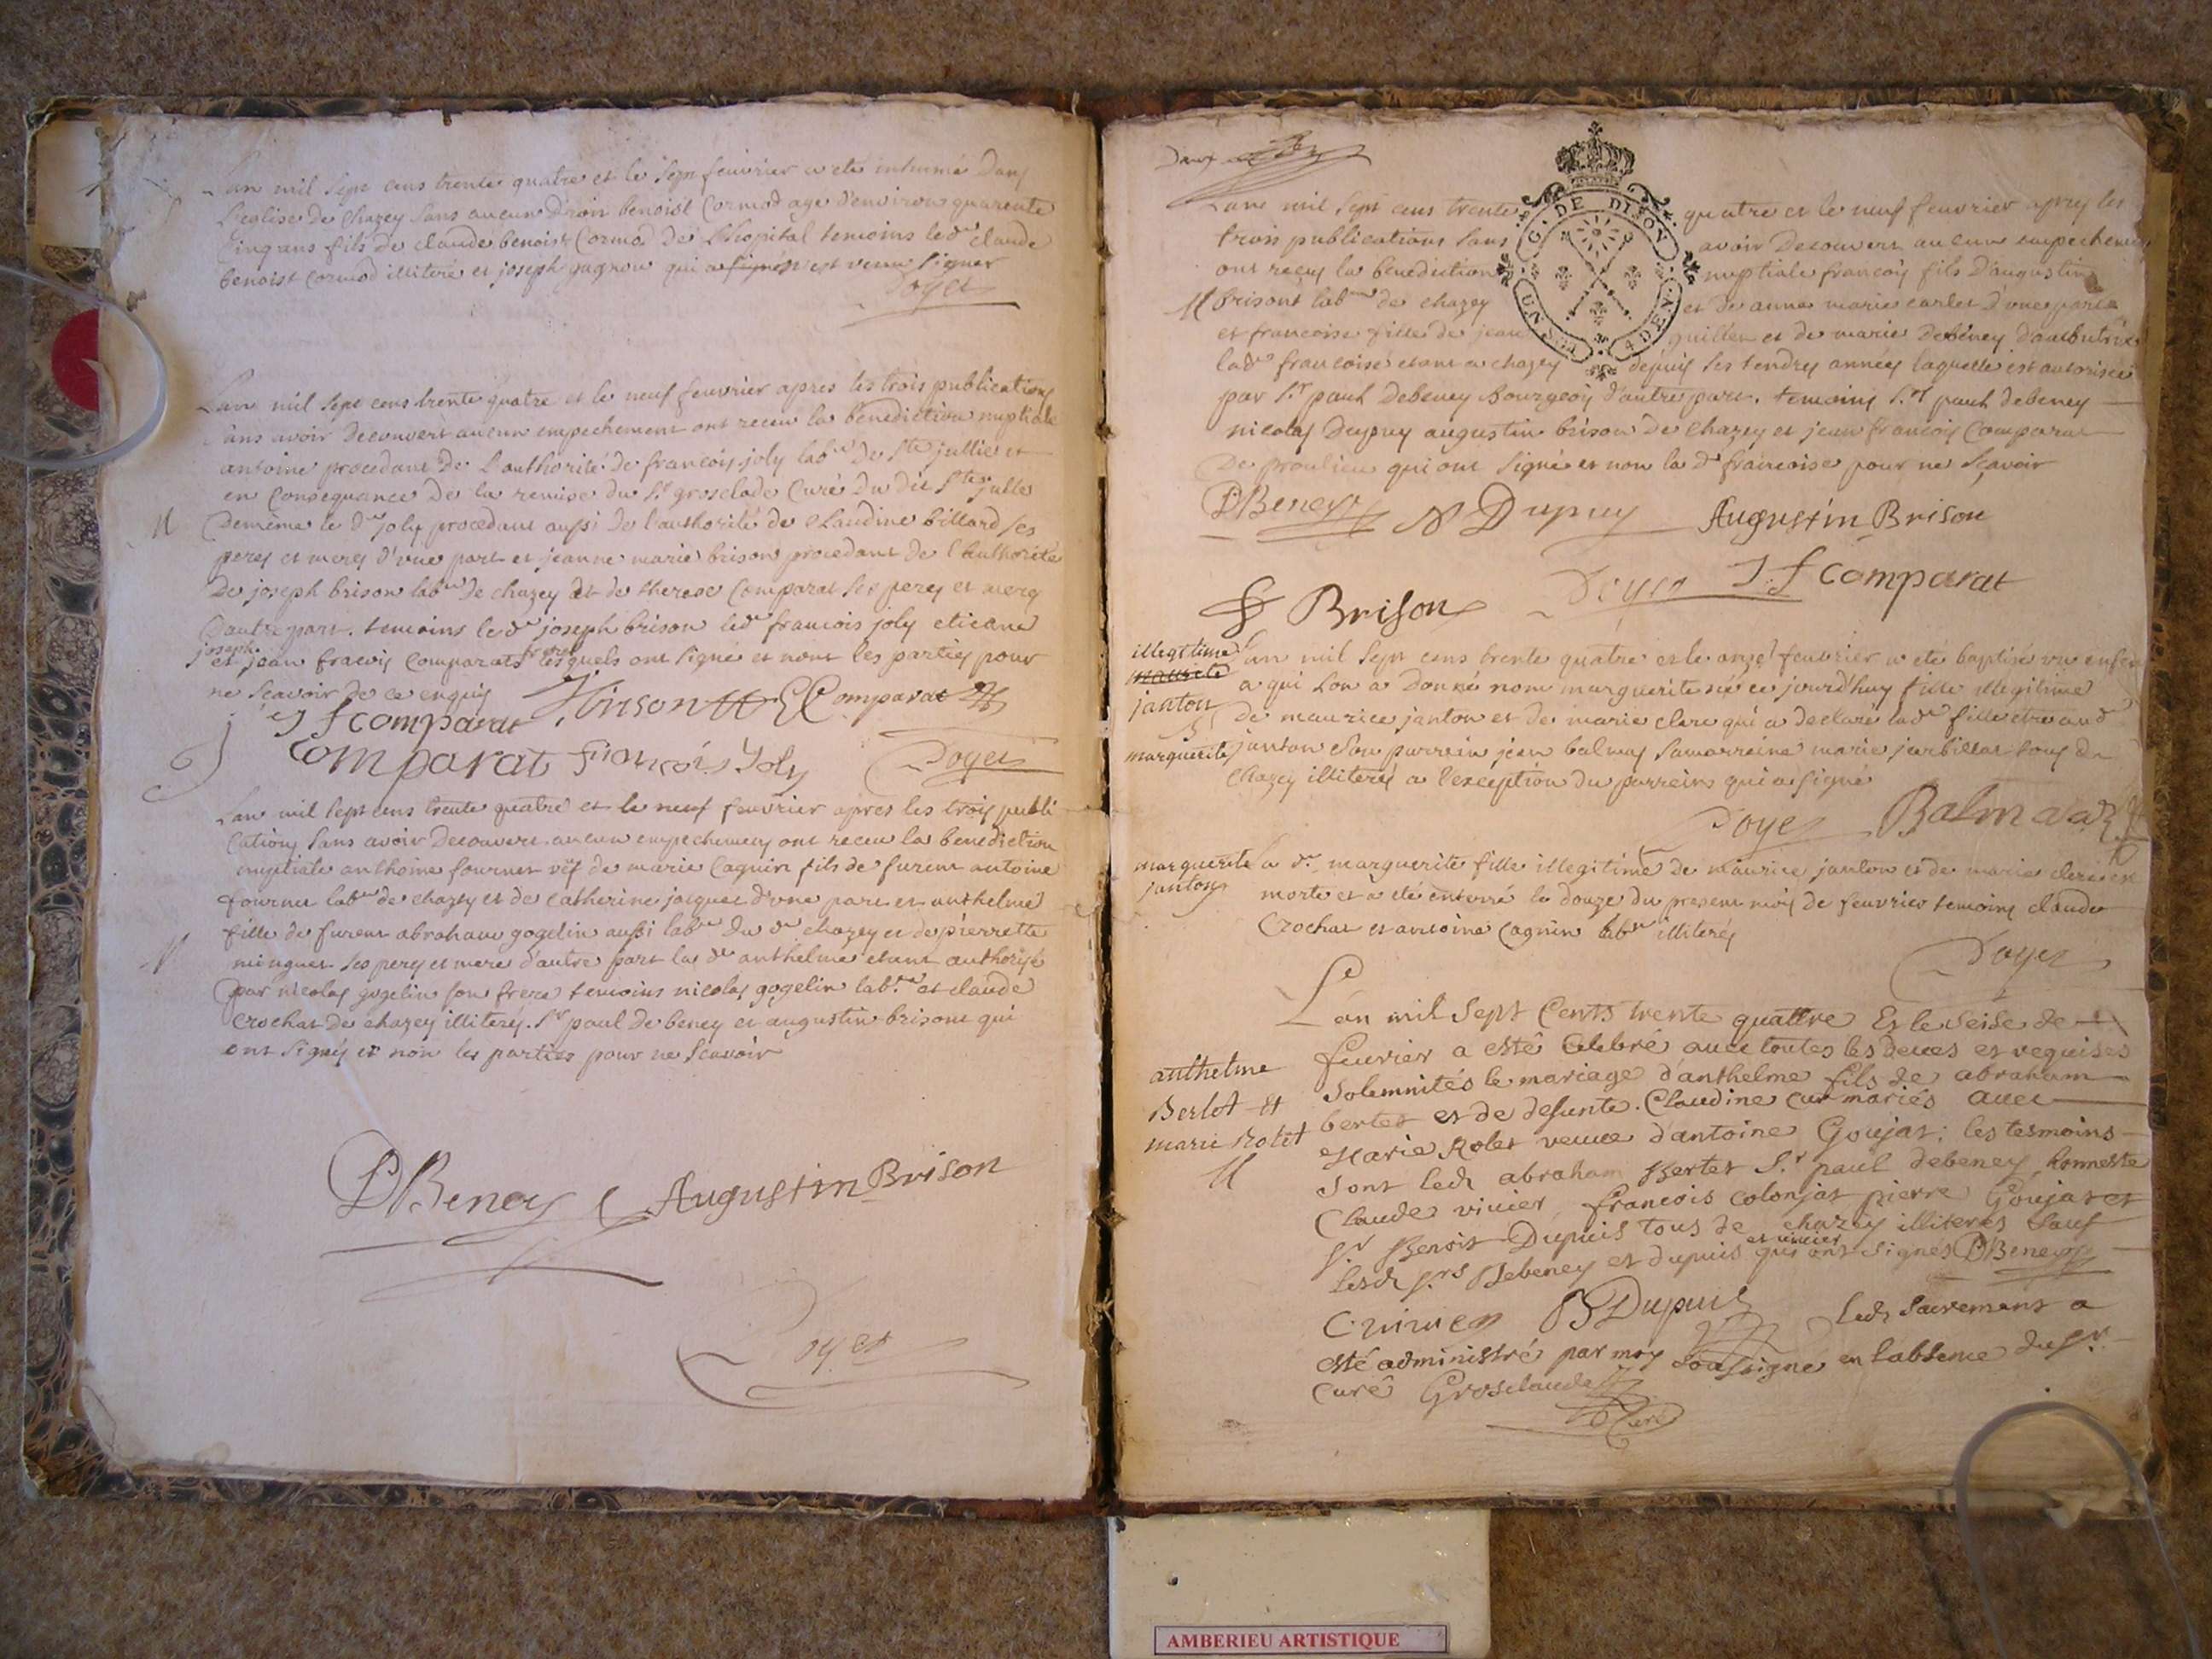 Lan mil sept cens trente quatre et le sept feuvrier a eté inhumé dans
l'eglise de chazey sans aucun droit benoist Cormod agé d'environ quarente
cinq ans fils de claude benoist Cormod de L'hopital temoins led. claude
benoist Cormod illiteré et joseph gagnon qui a signé
Doyet
Lan mil sept cens trente quatre et le neuf feuvrier apres les trois publications
sans avoir decouvert aucun empechement ont receu la benediction nuptiale
antoine procedant de l'authorité de françois joly lab.r de Ste jullie et
en Consequance de la remise du Sr groselade Curé du dit Ste julle
demême le d. joly procedant aussi de l'authorité de Claudine billard ses
peres et meres d'une part et jeanne marie brison procedant de l'authorité
de joseph brison lab.r de chazey et de therese Comparat ses peres et meres
d'autre part. temoins led. joseph brison led. francois joly etienne
joseph
et jean francois Comparats freres lesquels ont signé et nont les parties pour
ne sçavoir de ce enquis Brison E Comparat
J f comparat
J Comparat françois Joly Doyet
Lan mil sept cens trente quatre et le neuf feuvrier apres les trois publi
cations sans avoir decouvert aucun empechement ont receu la benediction
nuptiale anthoine fournet vëf de marie Cagnin fils de furent antoine
fournet lab.r de chazey et de catherine jacquet d'une part et anthelme
fille de furent abraham gogelin aussi lab.r du d. chazey et de pierrette
minguet ses pere et mere d'autre part la d. anthelme etant authorisé
par nicolas gogelin son frere temoins nicolas gogelin lab.r et claude
Crochat de chazey illiterés. Sr paul de beney et augustin brisont qui
ont signés et non les parties pour ne sçavoir
DBeney Augustin Brison
Doyet
Deux
Lan mil sept cens trente quatre et le neuf feuvrier apres les
G. DE DIJON
UN SOL 4 DEN.
trois publications sans avoir decouvert aucun empechement
ont receu la benediction nuptiale françois fils d'augustin
M brisont lab.r de chazey et de anne marie carlet d'une part
et francoise fille de jean guillet et de marie debeney d'ambutrix
lad. francoise etant a chazey depuis ses tendres années laquelle est autorisée
par Sr paul debeney bourgeois d'autre part. temoins Sr paul debeney
nicolas Dupuy augustin brison de chazey et jean francois Comparat
de proulieu qui ont signé et non la d. francoise pour ne sçavoir
DBeney N Dupuy Augustin Brison
f Brison Doyet J f comparat
illegitime
janton
marguerite
Lan mil sept cens trente quatre et le onze feuvrier a eté baptisé un enfen
a qui Lon a donné nom marguerite née ce jourd'huy fille illegitime
de maurice janton et de marie clerc qui a declaré lad. fille etre aud.
janton son parrein jean balmas sa marreine marie jarbillat tous de
chazey illiterés a l'exception du parreins qui a signé
Doyet Balmada
marguerite
janton
La d. marguerite fille illegitime de maurice janton et de marie clerc est
morte et a eté enterré le douze du present mois de feuvrier temoins claude
Crochat et antoine Cagnin lab.r illiterés
Doyet
anthelme
Berlet et
marie Rolet
M
Lan mil Sept Cents trente quattre Et le Seise de
feuvrier a esté Celebré auec toutes les deues et requises
solemnités le mariage d'anthelme fils de abraham
bertet et de defunte Claudine Cur mariés auec
Marie Rolet veuue d'antoine Goujat; les tesmoins
sont led. abraham Bertet Sr paul debeney, honneste
Claude vivier, francois colonjat pierre Goujat et
Sr Benoit Dupuis tous de chazey illiteres sauf
lesd. Srs Debeney et dupuis et vivier qui ont signés DBeney
C vivier B Dupuis led. Sacrement a
esté administré par moy soussigné en labsence du Sr
Curé Grosclaude
Curé
AMBERIEU ARTISTIQUE